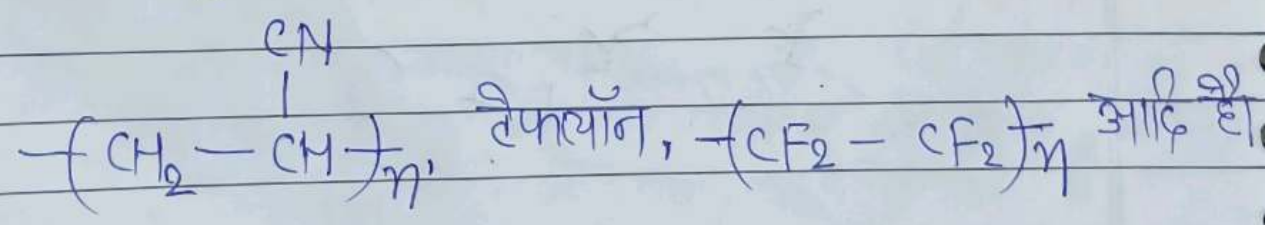 CN
|
-(CH₂ - CH-)n, टेफ्लॉन, -(CF₂ - CF₂)n आदि है।